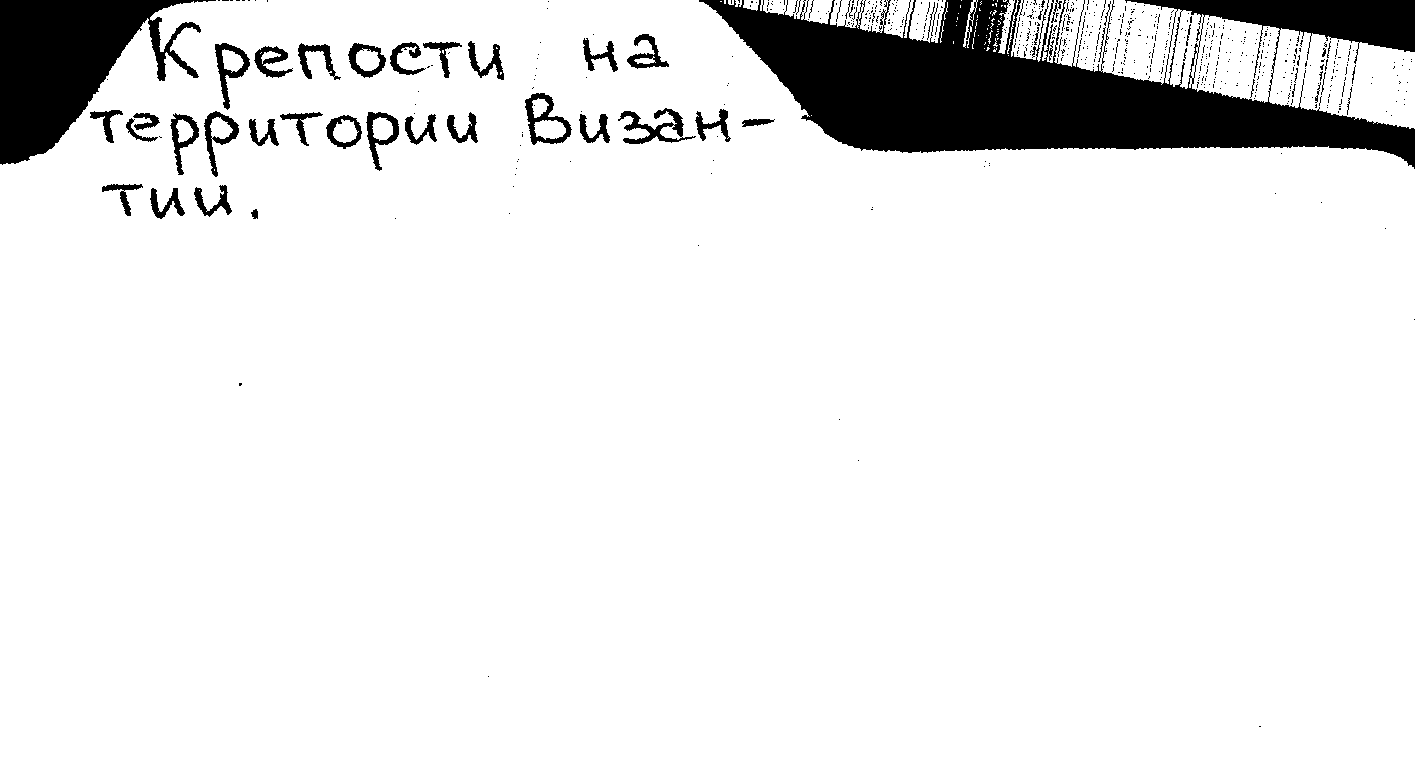 Крепости на
территории Визан-
тии.